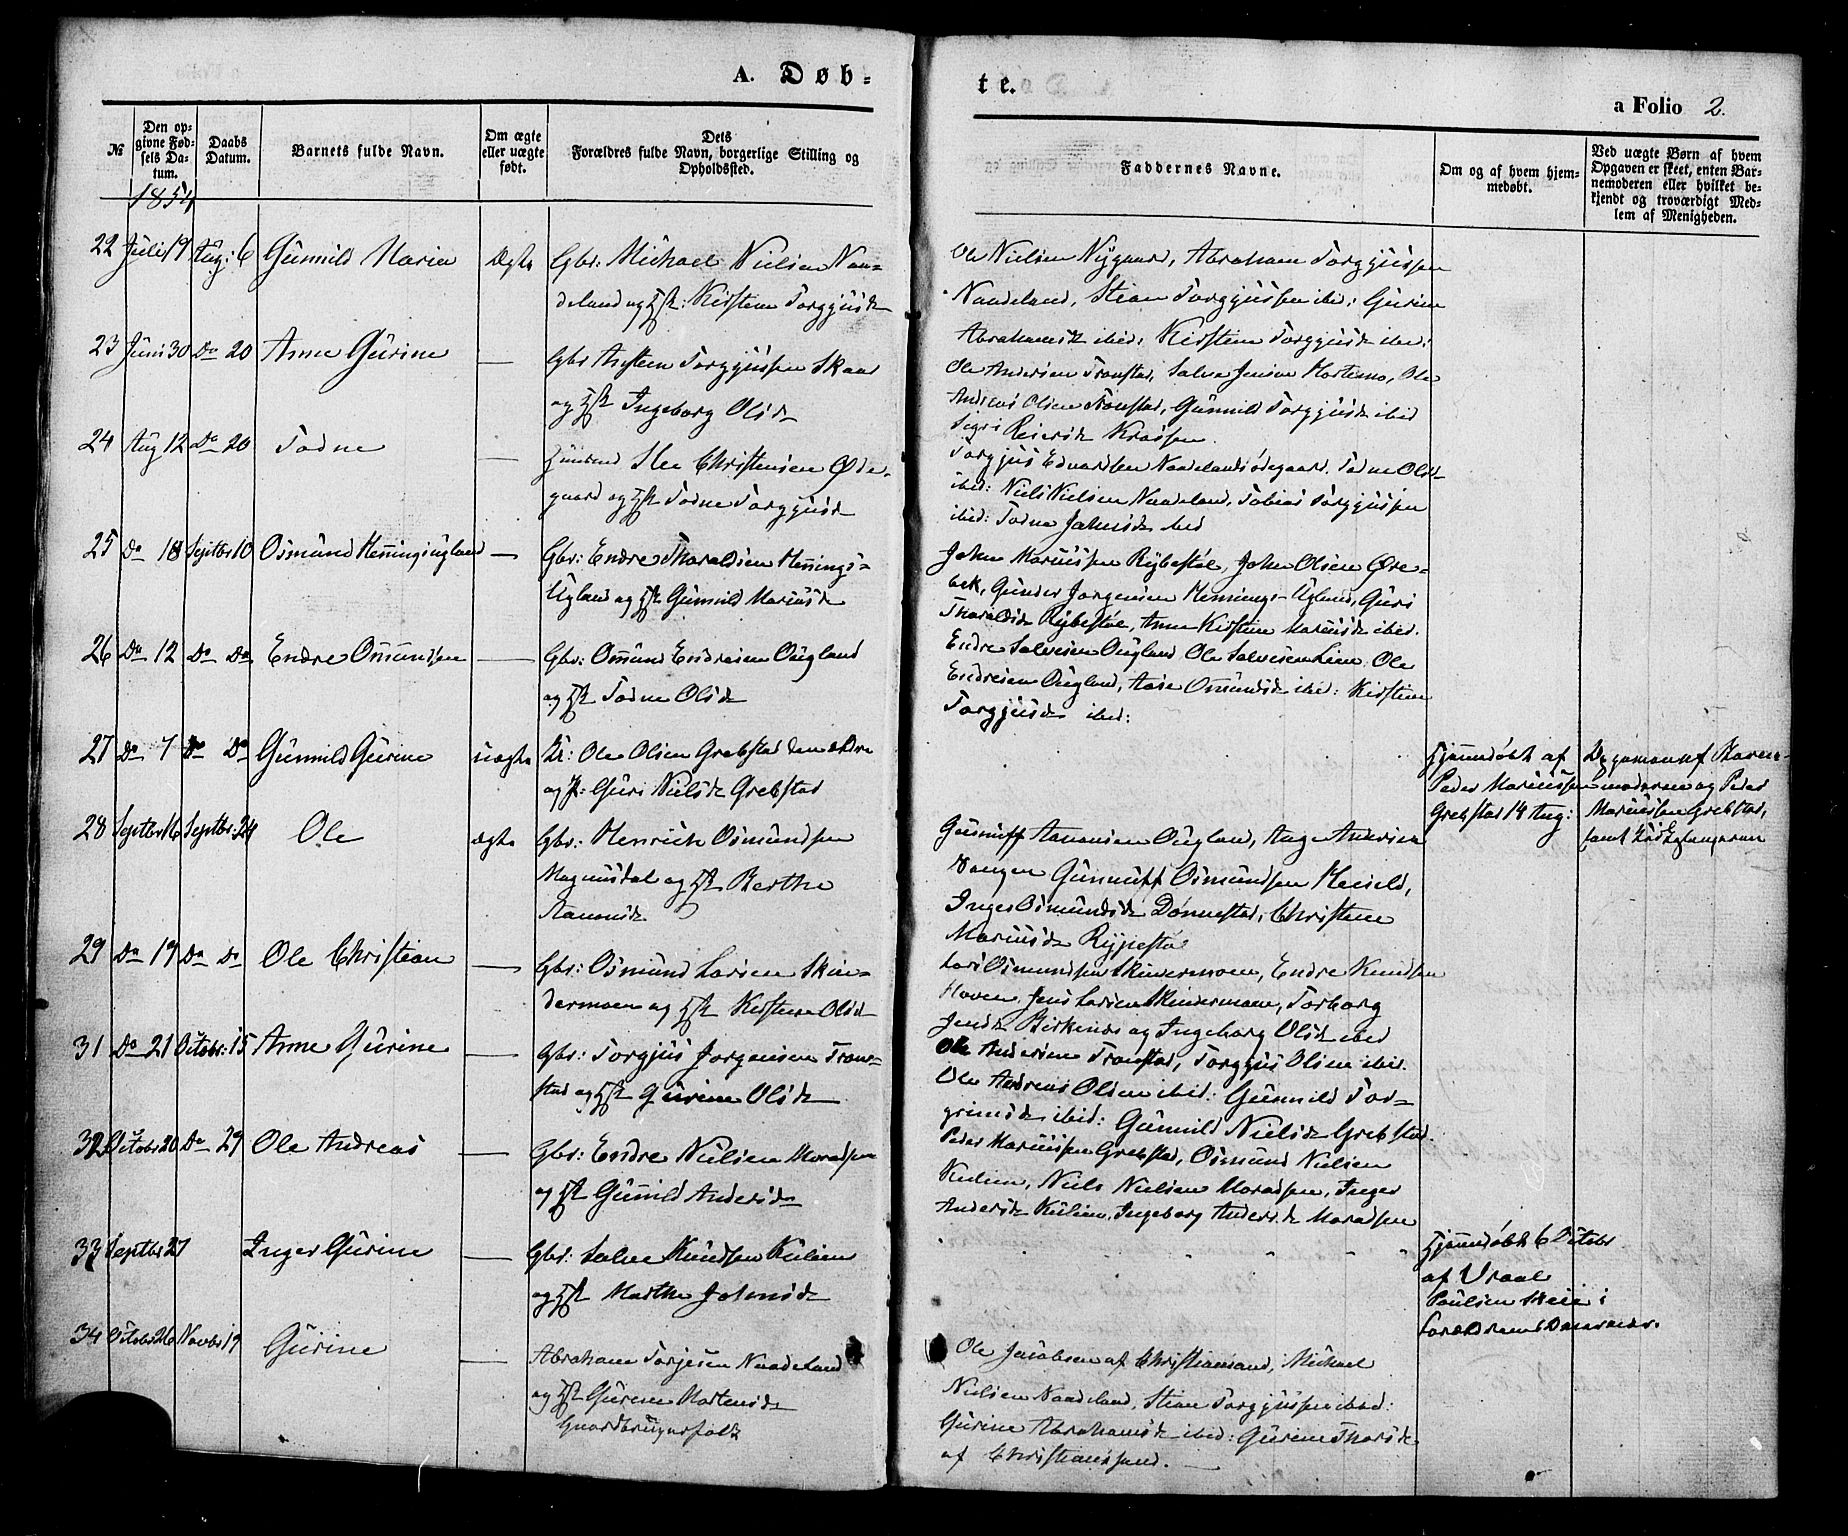 A. Døb-
te.
a Folio 2.
№
Den op-
givne Fød-
sels Da-
tum.
Daabs
Datum.
Barnets fulde Navn.
Om ægte
eller uægte
født.
Dets
Forældres fulde Navn, borgerlige Stilling og
Opholdssted.
Faddernes Navne.
Om og af hvem hjem-
medøbt.
Ved uægte Børn af hvem
Opgaven er skeet, enten Bar-
nemoderen eller hvilket be-
kjendt og troværdigt Med-
lem af Menigheden.
1854
22 Juli 19 Aug: 6 Gunnild Maria Ægte Gbr: Michael Nielsen Naa-
deland og Hst: Kirstine Torgjusd
Ole Nielsen Nygaard, Abraham Torgjussen
Naadeland, Stian Torgjussen ibid: Gurine
Abrahamsd ibid: Kirstine Torgjusd ibid:
23 Juni 30 Do 20 Anne Gurine — Gbr Aslten Torgjussen Skaar
og Hst Ingeborg Olsd
Ole Andersen Tronstad, Salve Jensen Mortemo, Ole
Andreas Olsen Tronstad, Gunnild Torgjusd ibid
Sigri Reiersd
24 Aug 12 Do 20 Todne — Christensen Øde-
gaard og Hst Todne Torgjusd
Torgjus Edvardsen Naadelandsødegaard. Todne Olsd
ibid: Niels Nielsen Naadeland, Tobias Torgjussen
ibid: Todne Jahnsd ibid
25 Do 18 Septbr 10 Osmund Henningsugland — Gbr: Endre Tharaldsen Hennings-
Ugland og Hst Gunnild Mariusd
John Mariussen Rybestøl, John Olsen Øre-
bek, Gunder Jørgensen Hennings-Ugland, Guri
Tharaldsd Rybestøl, Anne Kirstine Mariusd ibid.
26 Do 12 Do Do Endre Omundsen — Gbr: Omund Endresen Ougland
og Hst Todne Olsd
Endre Salvesen Ougland Ole Salvesen Lien, Ole
Endresen Ougland, Aase Omundsd ibid: Kirstine
Torgjusd ibid:
27 Do 7 Do Do Gunnild Gurine uægte Ole Olsen Grebstad den ældre
og P: Guri Nielsd Grebstad
Hjemmedøbt af
Peder Mariussen
Grebstad 14 Aug:
moderen og Peder
Mariussen Grebstad,
28 Septbr 16 Septbr: 24 Ole ægte Gbr: Henrich Osmundsen
Magnusdal og Hst Berthe
Aanonsd
Gunuff Aanonsen Ougland, Aage Andersen
Vangen Gunuff Osmundsen Heisel,
Inger Osmundsd Dønnestad, Christine
Mariusd Rypestøl
29 Do 19 Do Do Ole Christian — Gbr: Osmund Larsen Skin-
dermoen og Hst Kirstine Olsd
Lars Osmundsen Skindermoen, Endre Knudsen
Hoven, Jens Larsen Skindermoen, Torborg
Jensd Birkenes og Ingeborg Olsd ibid
31 Do 21 Octobr: 15 Anne Gurine — Gbr: Torgjus Jørgensen Tron-
stad og Hst Gurine Olsd
Ole Andersen Tronstad, Torgjus Olsen ibid.
Ole Andreas Olsen ibid: Gunnild Tor-
grimsd ibid: Gunnild Nielsd Grebstad.
32 Octobr 20 Do 29 Ole Andreas — Gbr: Endre Nielsen Moradsen
og Hst Gunild Andersd
Peder Mariussen Grebstad, Osmund Nielsen
Kulien, Niels Nielsen Moradsen, Inger
Andersd Kulien, Ingeborg Andersd Moradsen
33 Septbr 27 Inger Gurine — Gbr: Salve Knudsen Kulien
og Hst Marthe Johnsd
Hjemmedøbt 6 Octobr
af Vraal
Poulsen Heie i
Forældrenes Nærvær.
34 Octobr 26 Novbr 19 Gurine — Abraham Torjesen Naadeland
og Hst Gurine Mortensd
Gaardbrugerfolk
Ole Jacobsen af Christiansand, Michael
Nielsen Naadeland, Stian Torgjussen ibid:
Gurine Abrahamsd ibid: Gurine Thorsd
af Christianssand. —